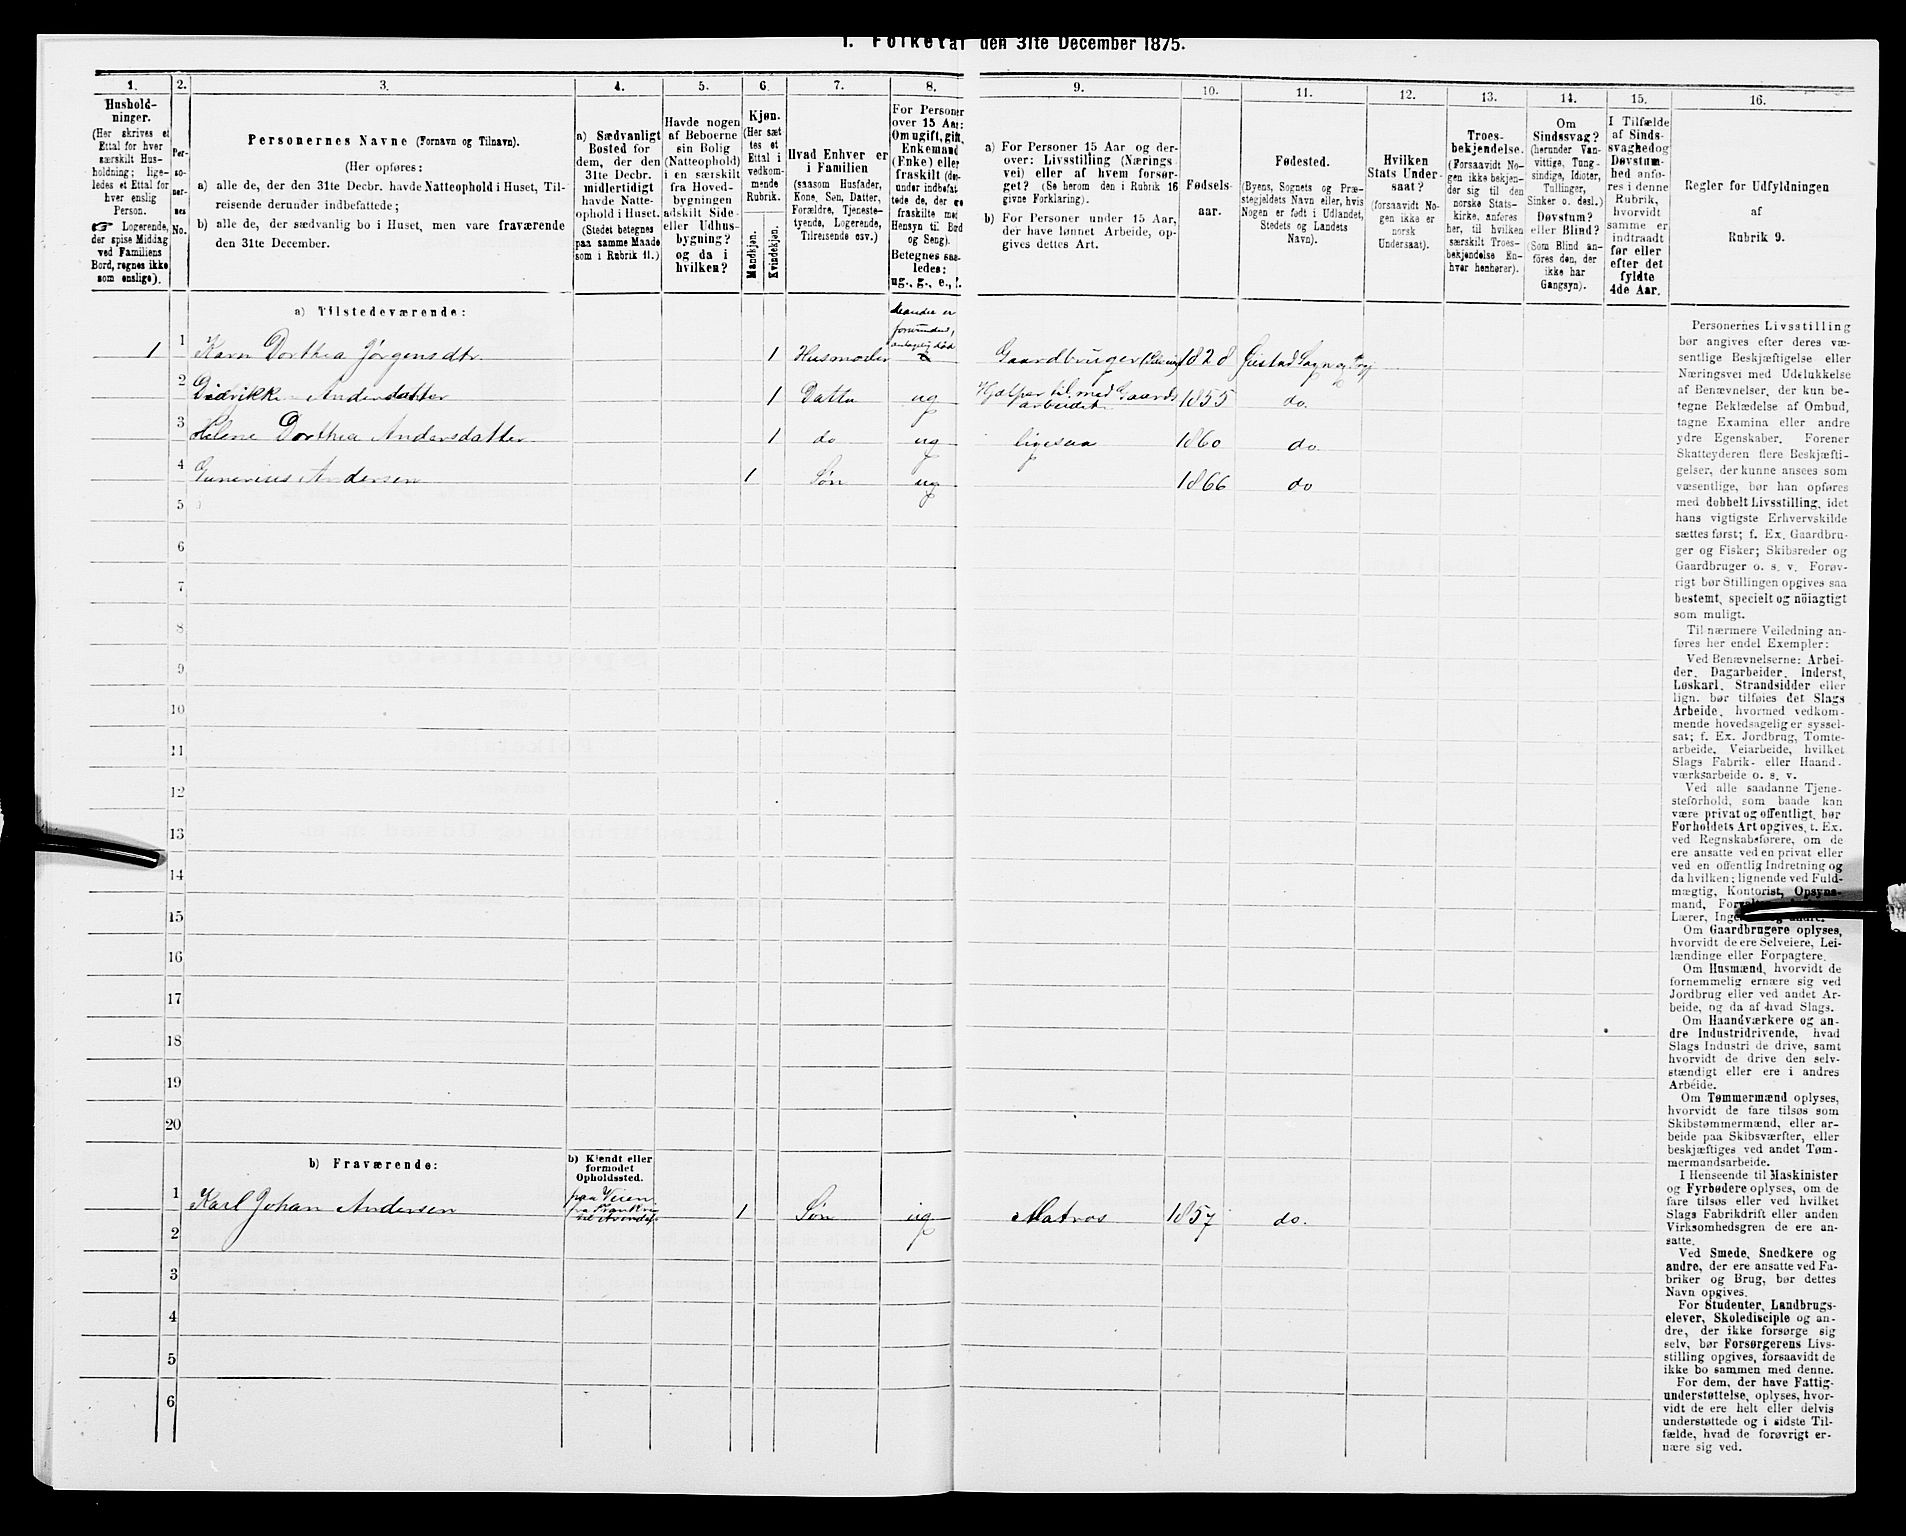 1. Folketal den 31te December 1875.
1.
2.
3.
4.
5.
6.
7.
8.
9.
10.
11.
12.
13.
14.
15.
16.
Hushold-
ninger.
(Her skrives et
Ettal for hver
særskilt Hus-
holdning; lige-
ledes et Ettal for
hver enslig
Person.
☞ Logerende,
der spise Middag
ved Familiens
Bord, regnes ikke
som enslige).
Per-
so-
ner-
nes
No.
Personernes Navne (Fornavn og Tilnavn).
(Her opføres:
a) alle de, der den 31te Decbr. havde Natteophold i Huset, Til-
reisende derunder indbefattede;
b) alle de, der sædvanlig bo i Huset, men vare fraværende
den 31te December.
a) Sædvanligt
Bosted for
dem, der den
31te Decbr.
midlertidigt
havde Natte-
ophold i Huset.
(Stedet betegnes
paa samme Maade
som i Rubrik 11.)
Havde nogen
af Beboerne
sin Bolig
(Natteophold)
i en særskilt
fra Hoved-
bygningen
adskilt Side-
eller Udhus-
bygning?
og da i
hvilken?
Kjøn.
(Her sæt-
tes et
Ettal i
vedkom-
mende
Rubrik.
Mandskjøn.
Kvindekjøn.
Hvad Enhver er
i Familien
(saasom Husfader,
Kone, Søn, Datter,
Forældre, Tjeneste-
tyende, Logerende,
Tilreisende osv.)
For Personer
over 15 Aar:
Om ugift, gift,
Enkemand
(Enke) eller
fraskilt (der-
under indbefat-
tede de, der ere
fraskilte med
Hensyn til Bord
og Seng).
Betegnes saa-
ledes:
ug., g., e., f.
a) For Personer 15 Aar og der-
over: Livsstilling (Nærings-
vei) eller af hvem forsør-
get? (Se herom den i Rubrik 16
givne Forklaring).
b) For Personer under 15 Aar,
der have lønnet Arbeide, op-
gives dettes Art.
Fødsels-
aar.
Fødested.
(Byens, Sognets og Præ-
stegjeldets Navn, eller, hvis
Nogen er født i Udlandet,
Stedets og Landets
Navn).
Hvilken
Stats Under-
saat?
(forsaavidt No-
gen ikke er
norsk
Undersaat).
Troes-
bekjendelse.
(Forsaavidt No-
gen ikke bekjen-
der sig til den
norske Stats-
kirke, anføres
her, til hvilken
særskilt Troes-
bekjendelse En-
hver henhører).
Om
Sindssvag?
(herunder Van-
vittige, Tung-
sindige, Idioter,
Tullinger,
Sinker o. desl.)
Døvstum?
eller Blind?
(Som Blind an-
føres den, der
ikke har
Gangsyn).
I Tilfælde
af Sinds-
svaghed og
Døvstum-
hed anfø-
res i denne
Rubrik,
hvorvidt
samme er
indtraadt
før eller
efter det
fyldte
4de Aar.
Regler for Udfyldningen
af
Rubrik 9.
a) Tilstedeværende:
1 1 Karn Dorthea Jørgensdtr 1 Husmoder Gaardbruger 1828
2 Didrikke Andersdatter 1 Datter ug Hjælper til med Gaards
arbeidet 1855 do.
3 Helene Dorthea Andersdatter 1 do ug ligesaa 1860 do.
4 Gunerius Andersen 1 Søn ug 1866 do
5
6
7
8
9
10
11
12
13
14
15
16
17
18
19
20
b) Fraværende:
b) Kjendt eller
formodet
Opholdssted.
paa Veien
1 Karl Johan Andersen 1 Søn ug Matros 1857 do.
2
3
4
5
6
Personernes Livsstilling
bør angives efter deres væ-
sentlige Beskjæftigelse eller
Næringsvei med Udelukkelse
af Benævnelser, der kun be-
tegne Beklædelse af Ombud,
tagne Examina eller andre
ydre Egenskaber. Forener
Skatteyderen flere Beskjæfti-
gelser, der kunne ansees som
væsentlige, bør han opføres
med dobbelt Livsstilling, idet
hans vigtigste Erhvervskilde
sættes først; f. Ex. Gaardbru-
ger og Fisker; Skibsreder og
Gaardbruger o. s. v. Forøv-
rigt bør Stillingen opgives saa
bestemt, specielt og nöiagtigt
som muligt.
Til nærmere Veiledning an-
føres her endel Exempler:
Ved Benævnelserne: Arbei-
der, Dagarbeider, Inderst,
Løskarl, Strandsidder eller
lign. bør tilføies det Slags
Arbeide, hvormed vedkom-
mende hovedsagelig er syssel-
sat; f. Ex. Jordbrug, Tomte-
arbeide, Veiarbeide, hvilket
Slags Fabrik- eller Haand-
værksarbeide o. s. v.
Ved alle saadanne Tjene-
steforhold, som baade kan
være privat og offentligt, bør
Forholdets Art opgives, t. Ex.
ved Regnskabsførere, om de
ere ansatte ved en privat eller
ved en offentlig Indretning og
da hvilken; lignende ved Fuld-
mægtig, Kontorist, Opsyns-
mand,
Lærer,
Om Gaardbrugere oplyses,
hvorvidt de ere Selveiere, Lei-
lændinge eller Forpagtere.
Om Husmænd, hvorvidt de
fornemmelig ernære sig ved
Jordbrug eller ved andet Ar-
beide, og da af hvad Slags.
Om Haandværkere og an-
dre Industridrivende, hvad
Slags Industri de drive, samt
hvorvidt de drive den selv-
stændigt eller ere i andres
Arbeide.
Om Tømmermænd oplyses,
hvorvidt de fare tilsøs som
Skibstømmermænd, eller ar-
beide paa Skibsværfter, eller
beskjæftiges ved andet Tøm-
mermandsarbeide.
I Henseende til Maskinister
og Fyrbødere oplyses, om de
fare tilsøs eller ved hvilket
Slags Fabrikdrift eller anden
Virksomhedsgren de ere an-
satte.
Ved Smede, Snedkere og
andre, der ere ansatte ved Fa-
briker og Brug, bør dettes
Navn opgives.
For Studenter, Landbrugs-
elever, Skoledisciple og an-
dre, der ikke forsørge sig
selv, bør Forsørgerens Livs-
stilling opgives, forsaavidt de
ikke bo sammen med denne.
For dem, der have Fattig-
understøttelse, oplyses, hvor-
vidt de ere helt eller delvis
understøttede og i sidste Til-
fælde, hvad de forøvrigt er-
nære sig ved.